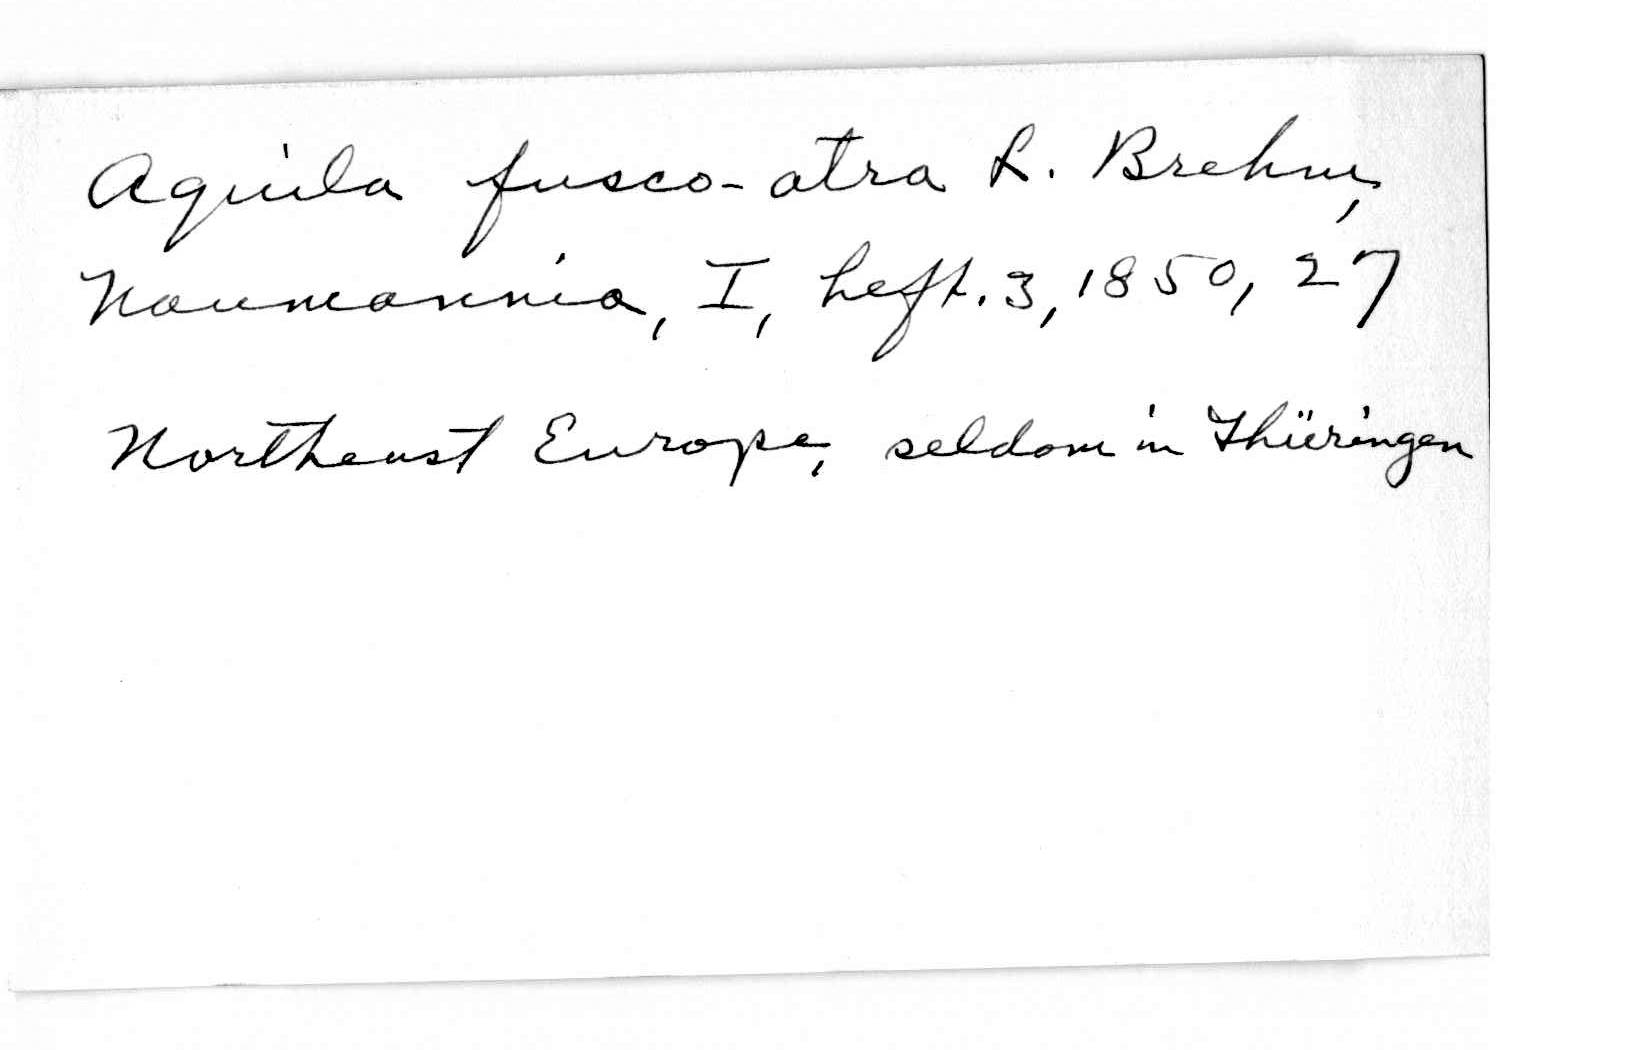 Aquila fusco-atra L. Brehm,
Naumannia, I, heft. 3, 1850, 27
Northeast Europe, seldom in Thüringen